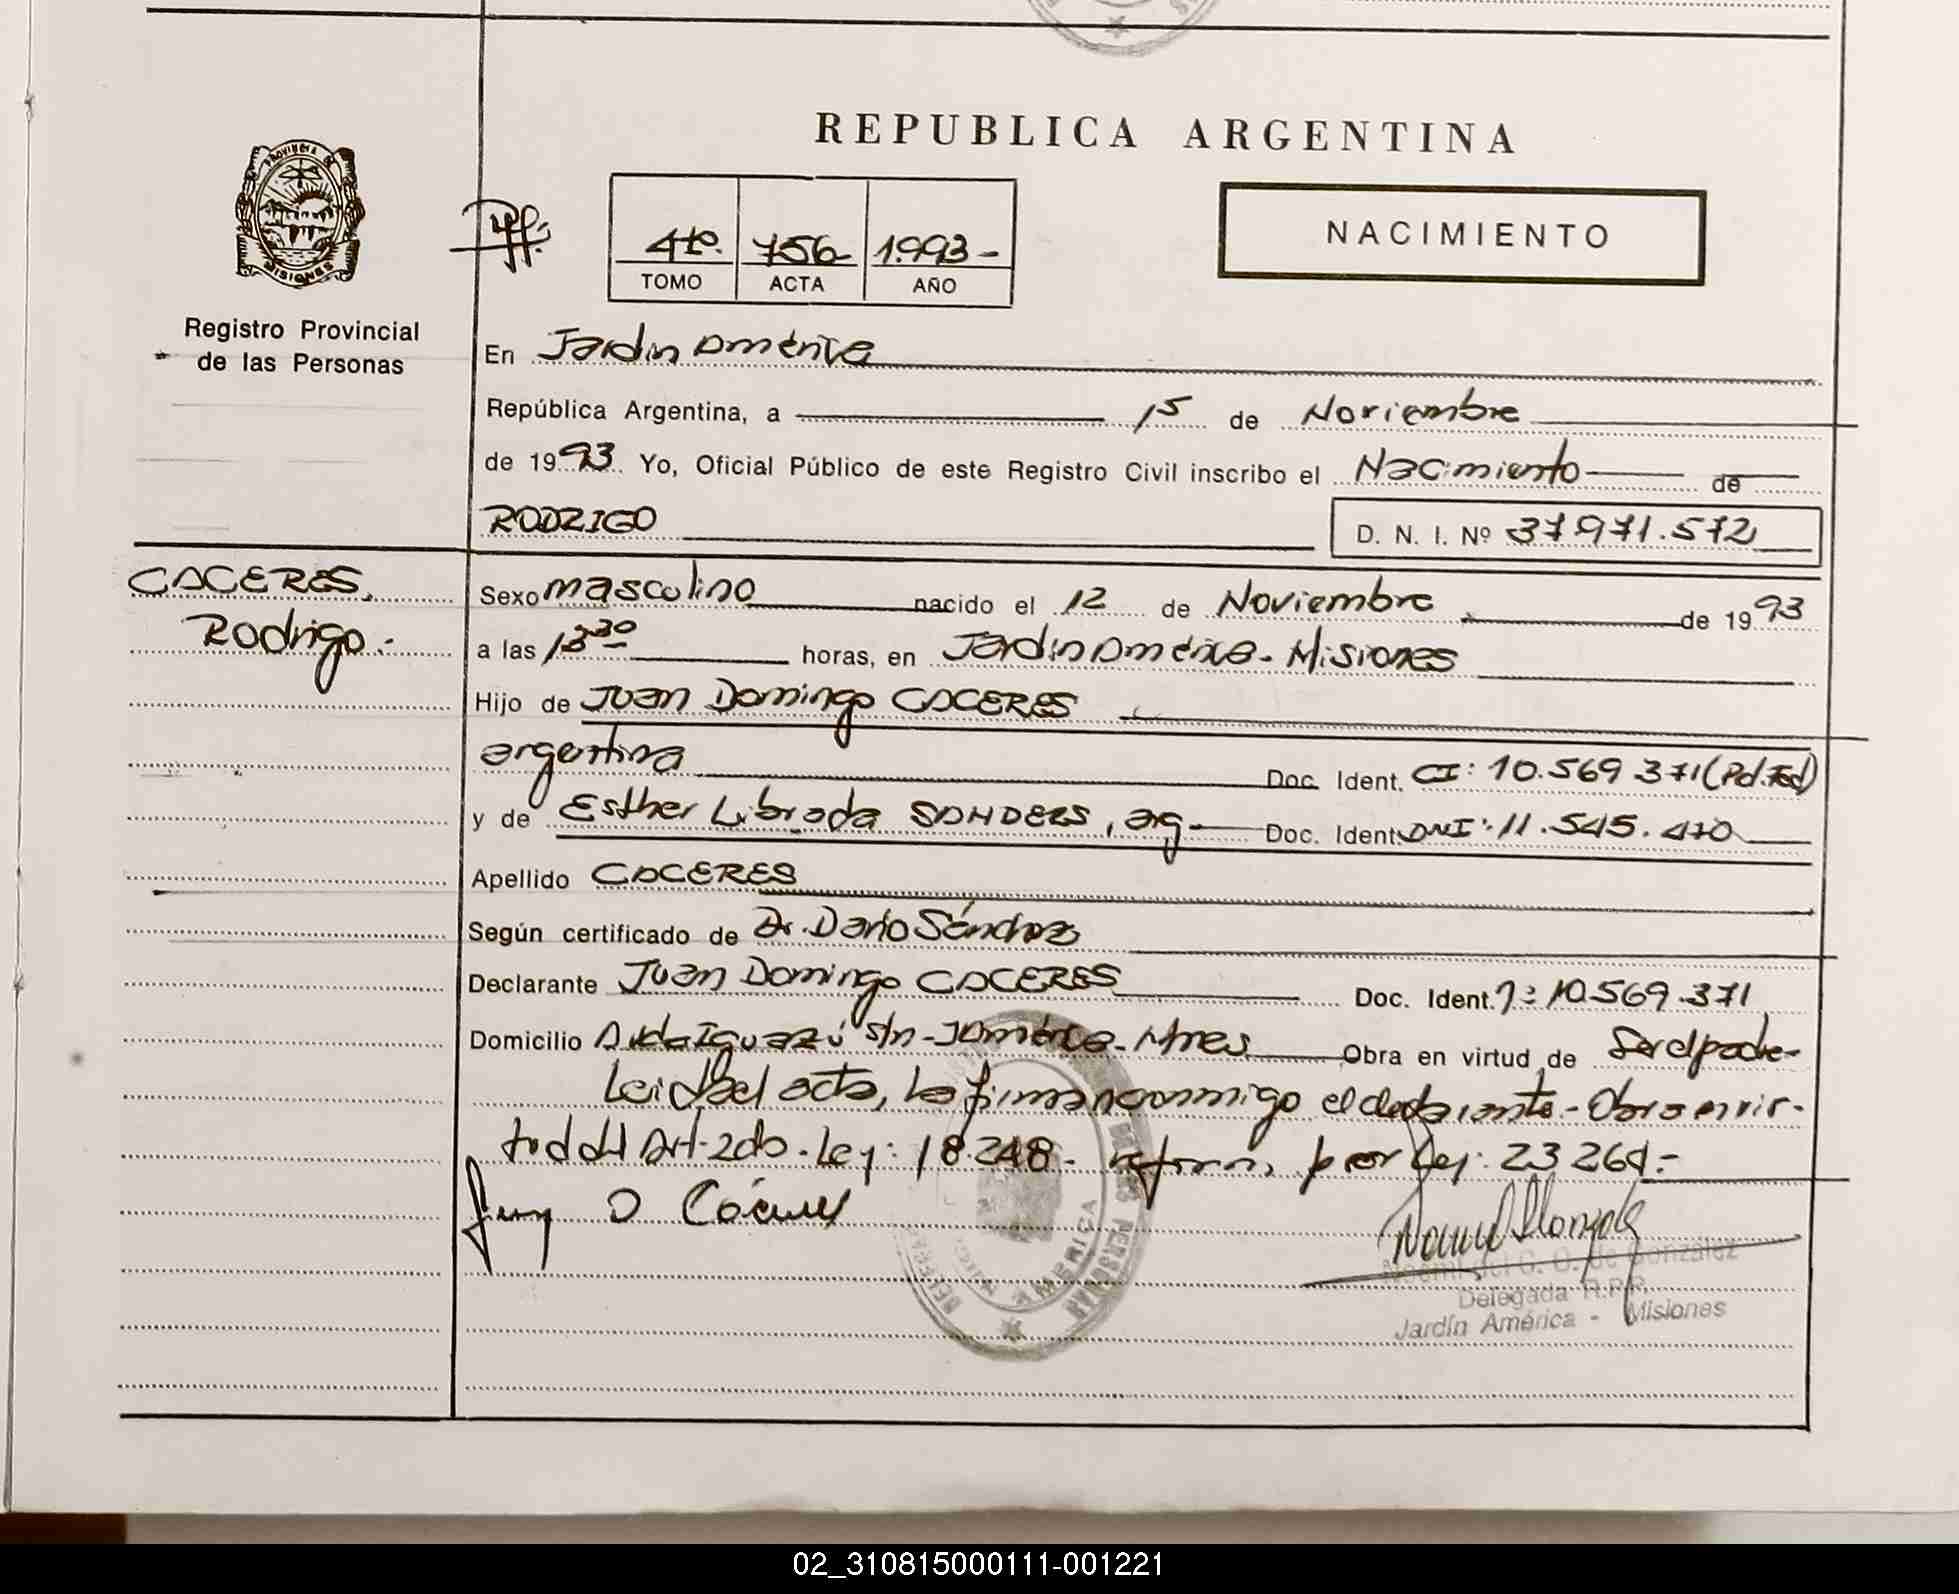 REPUBLICA ARGENTINA
PROVINCIA DE
MISIONES
Registro Provincial
de las Personas
4to. 756 1.993-
TOMO ACTA AÑO
NACIMIENTO
En Jardin America
República Argentina, a 15 de Noviembre
de 1993 Yo, Oficial Público de este Registro Civil inscribo el Nacimiento de
RODRIGO D. N. I. Nº 37.971.572
CACERES,
Rodrigo.-
Sexo masculino nacido el 12 de Noviembre de 1993
a las 13 30 horas, en Jardin America- Misiones
Hijo de Juan Domingo CACERES
argentina Doc. Ident. CI: 10.569 371 (Pol. Fed)
y de Esther Librada SANDERS, arg- Doc. Ident. DNI: 11.545.470
Apellido CACERES
Según certificado de Dr. Dario Sánchez
Declarante Juan Domingo CACERES Doc. Ident. 10.569.371
Domicilio Avda Iguazú s/n- J América- Mnes Obra en virtud de Ser el padre-
Leida el acta, la firma conmigo el declarante.- Obro en vir-
tud del Art- 2do. Ley: 18.248- reform, por Ley: 23 264.-
Juan D Cáceres
AMERICA
Noemi del C. O. de Gonzalez
Delegada R.P.P.
Jardín América - Misiones
02_310815000111-001221